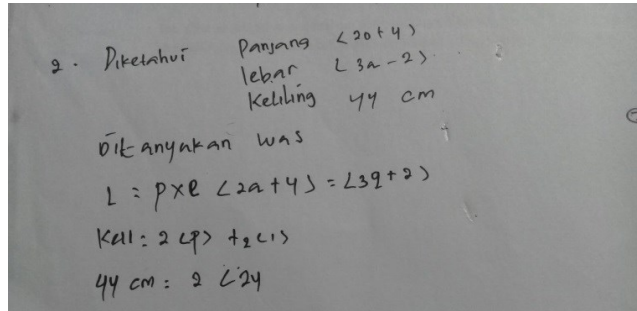 2. Diketahui Panjang (2a+4)
lebar (3a-2)
Keliling 44 cm
Ditanyakan Luas
L = pxl (2a+4) = (3a+2)
Kell = 2(p) + 2(l)
44 cm = 2 (24